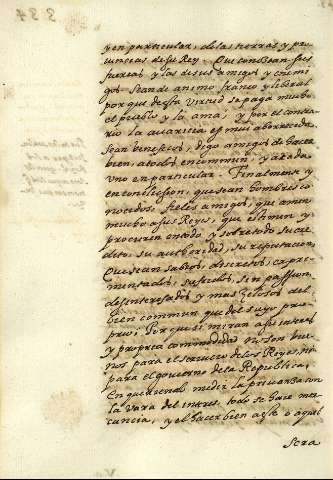 y en particular, de las tierras y pro
vincias de su Rey. Que conoscan sus
fuerças y las de sus amigos y enemi
gos. Sean de animo franco y liberal
porque desta virtud se paga mucho
el pueblo y la ama; y por el contra
rio la avaricia es muy aborrecida.
Sean beneficos, digo amigos de hacer
bien, a todos en commun, y a cada
uno en particular. Finalmente y
en conclusion, que sean hombres co
nocidos, fieles amigos, que amen
mucho a sus Reyes, que estimen y
procuren en todo y sobre todo su cre
dito, su authoridad, su reputacion,
Que sean sabios, discretos, expe
mentados, sin passion,
desinteresados y mas zelosos del
bien commun que del suyo pro
prio; Porque si miran a su interes
y propria commodidad no son bue
nos para el servicio de los Reyes, ni
para el govierno de la Republica;
En queriendo medir la privanza con
la vara del interes, todo se hace mer
cancia, y el hacer bien a este o aquel
Sera